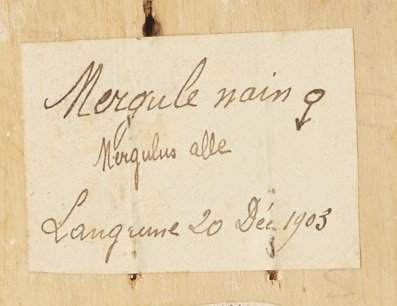 Mergule nain ♀
Mergulus alle
Langrune 20 Déc 1903